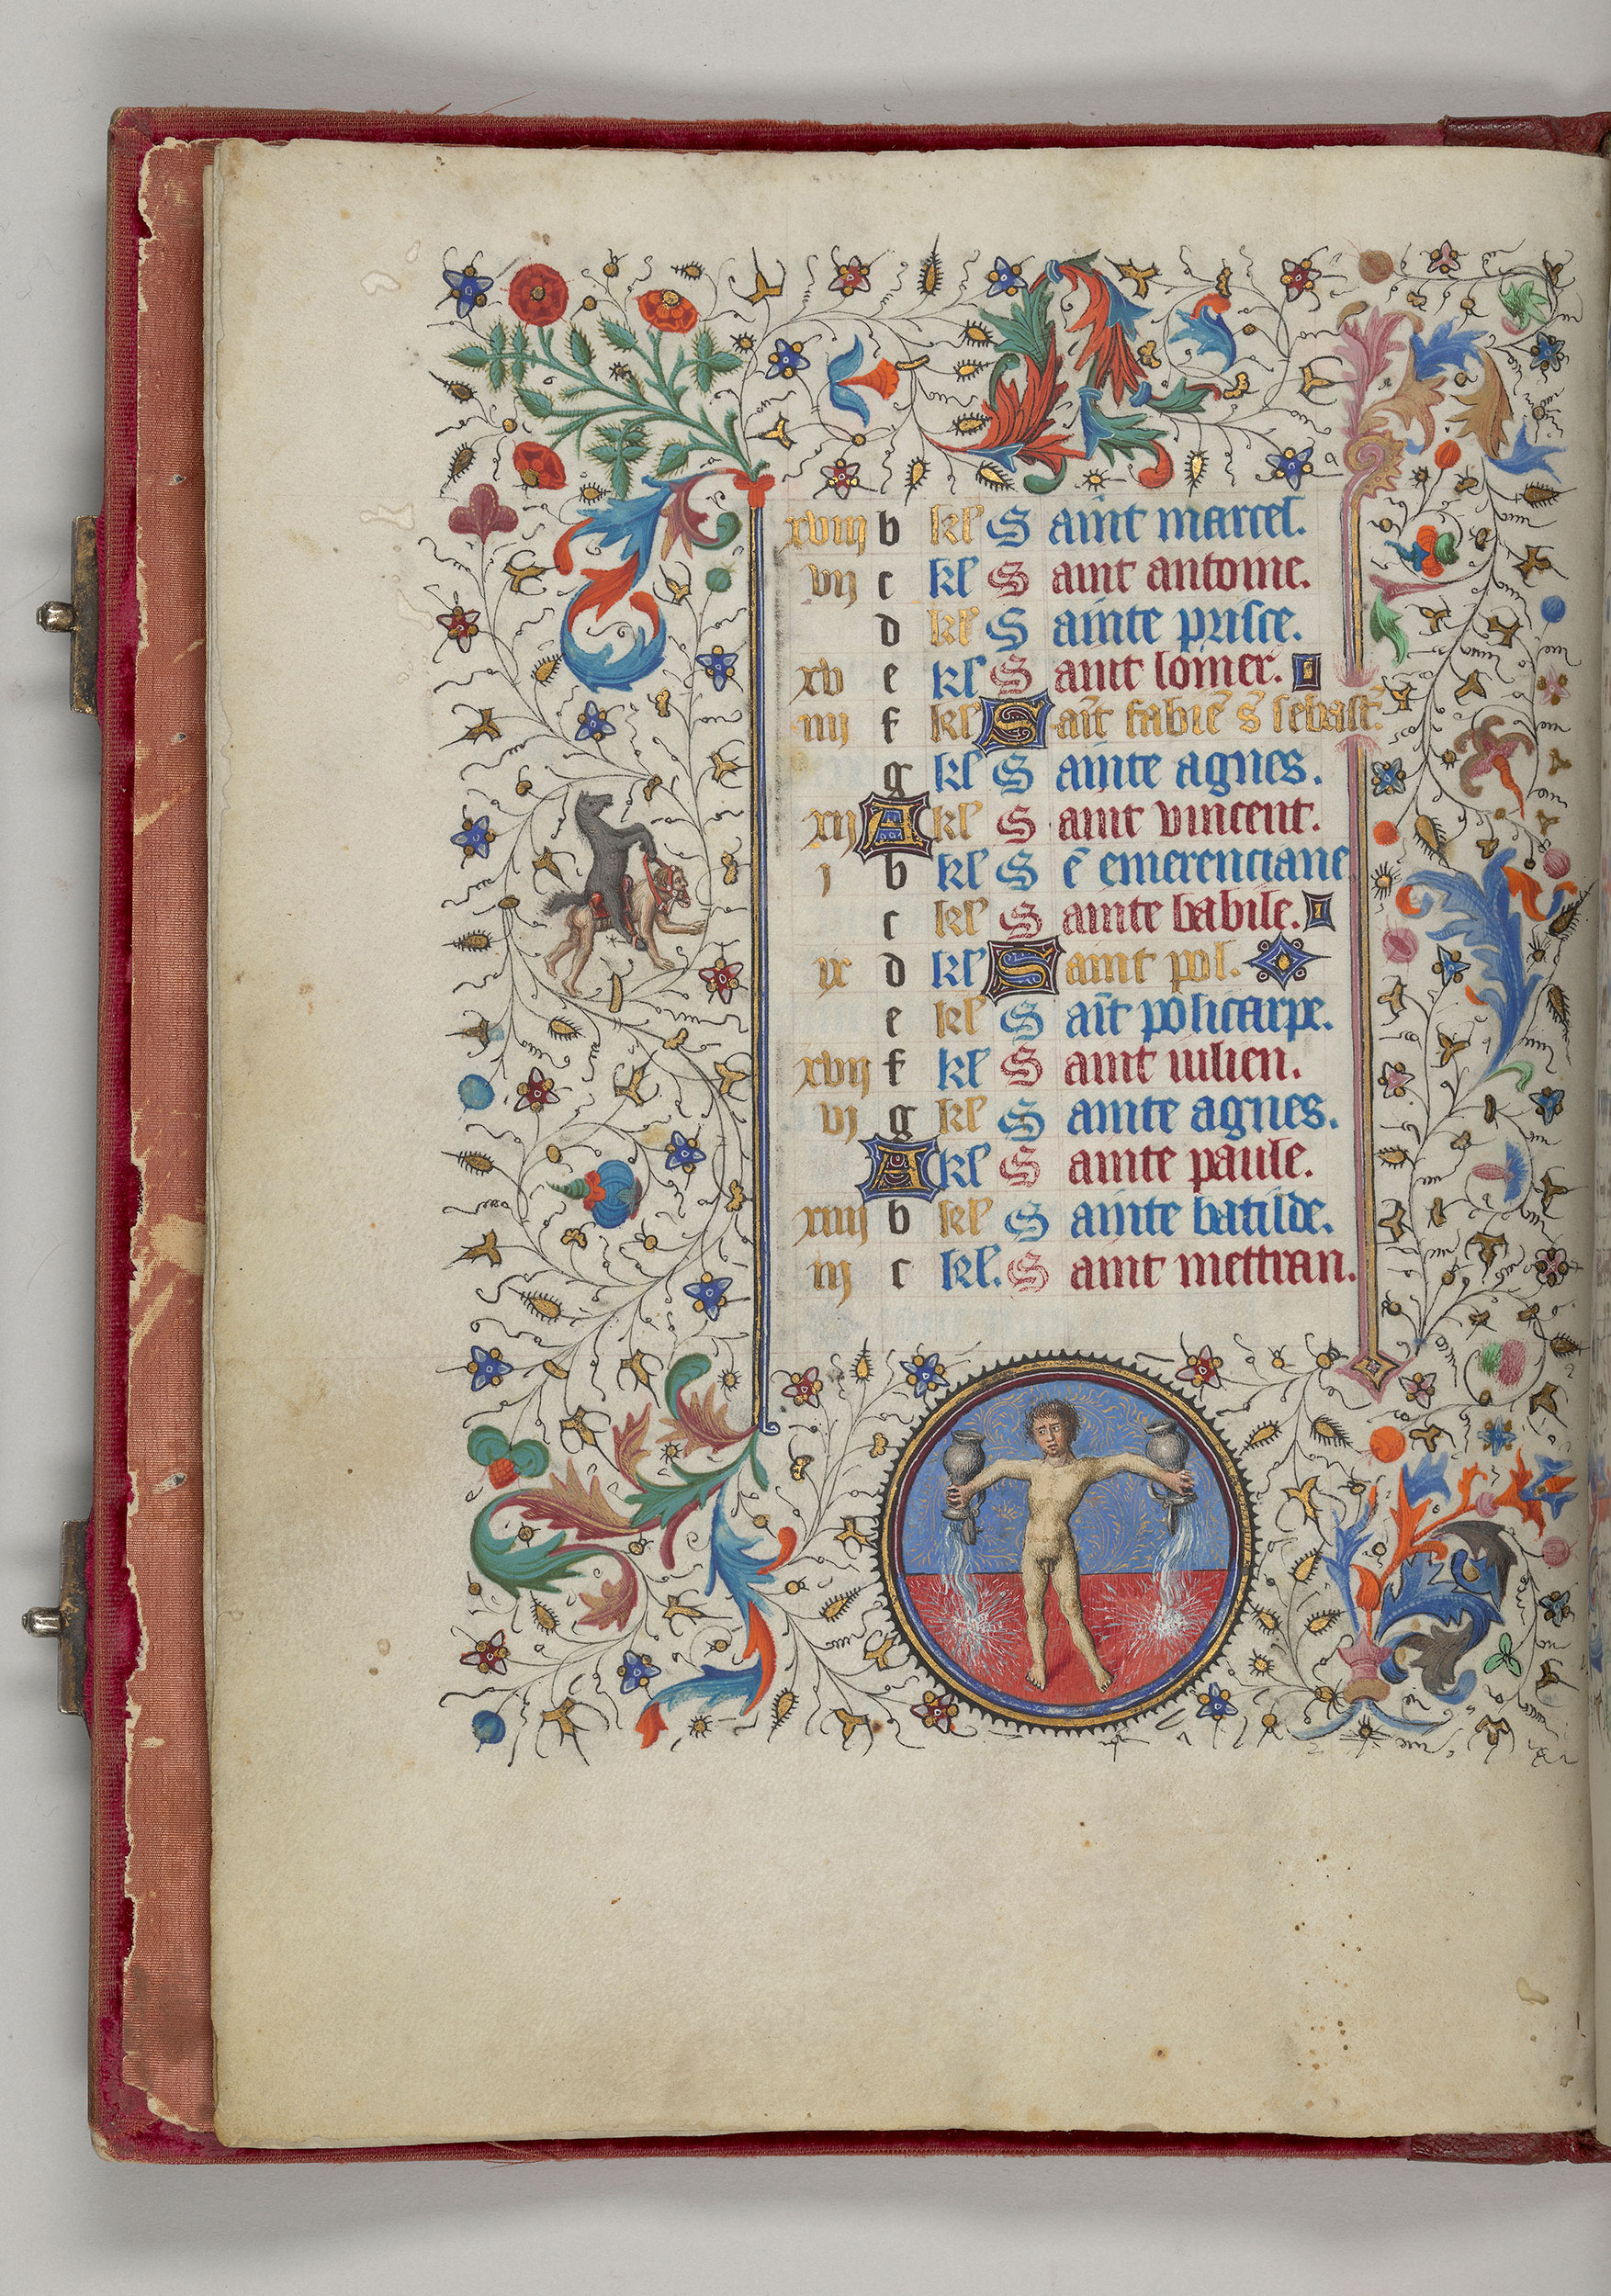 xviij b kl Saint marcel.
vij c kl Saint antoine.
d kl Sainte prisce.
xv e kl Saint lomer.
iiij f kl Saīt fabiē s̄ sebast̄.
g kl Sainte agnes.
xij A kl Saint vincent.
j b kl S ē emerenciane
c kl Sainte babile.
ix d kl Saint pol.
e kl Saīt policarpe.
xvij f kl Saint iulien.
vj g kl Sainte agnes.
A kl Sainte paule.
xiiij b kl Sainte batilde.
iij c kl. Saint mettran.